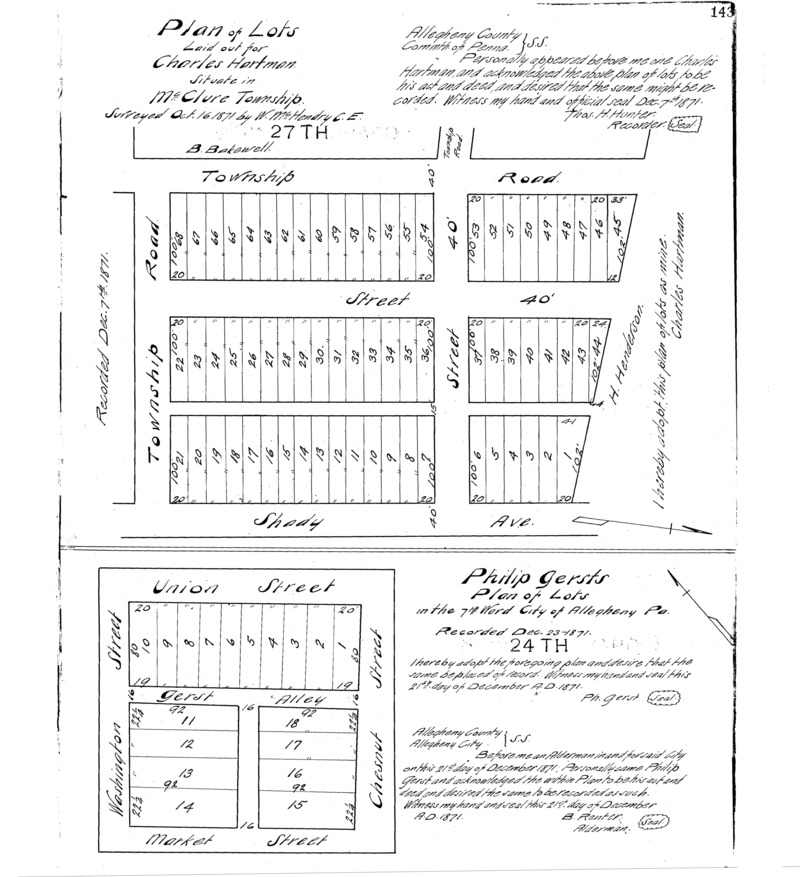 143
Plan of Lots
Laid out for
Charles Hartman
Situate in
McClure Township.
Surveyed Oct. 16. 1871 by W. McHendry C.E.
27TH
Allegheny County
Comin'th of Penna. } S.S.
Personally appeared before me one Charles
Hartman, and acknowledged the above plan of lots to be
his act and deed, and desired that the same might be re-
corded. Witness my hand and official seal Dec. 7th 1871.
Thos. H. Hunter.
Recorder. Seal
B. Bakewell.
Township Road
40'
Township Road.
Recorded Dec. 7th 1871.
Township Road
20 20
100' 68 67 66 65 64 63 62 61 60 59 58 57 56 55 54 100'
20 20
40'
20 20 33'
100' 53 52 51 50 49 48 47 46 45 102'
12
Street 40'
20 20
100' 22 23 24 25 26 27 28 29 30 31 32 33 34 35 36 100'
15
Street
20 20 24
100' 37 38 39 40 41 42 43 44 102'
H. Henderson.
I hereby adopt this plan of lots as mine.
Charles Hartman.
100' 21 20 19 18 17 16 15 14 13 12 11 10 9 8 7 100'
20 20
41
100' 6 5 4 3 2 1 102'
20 20
40'
Shady Ave.
Union Street
Washington Street
20 20
80 10 9 8 7 6 5 4 3 2 1 80
19 19
16 16
Gerst Alley
16
22½ 92 92 22½
11 18
12 17
13 16
92 92
22½ 14 15 22½
16
Market Street
Chesnut Street
Philip Gersts
Plan of Lots
in the 7th Ward City of Allegheny Pa.
Recorded Dec. 23. 1871.
24TH
I hereby adopt the foregoing plan and desire that the
same be placed of record. Witness my hand and seal this
21st day of December A.D. 1871.
Ph. Gerst Seal
Allegheny County
Allegheny City } S.S.
Before me an Alderman in and for said City
on this 21st day of December 1871. Personally came Philip
Gerst and acknowledged the within Plan to be his act and
deed and desired the same to be recorded as such.
Witness my hand and seal this 21st. day of December
A.D. 1871.
B. Renter.
Alderman. Seal